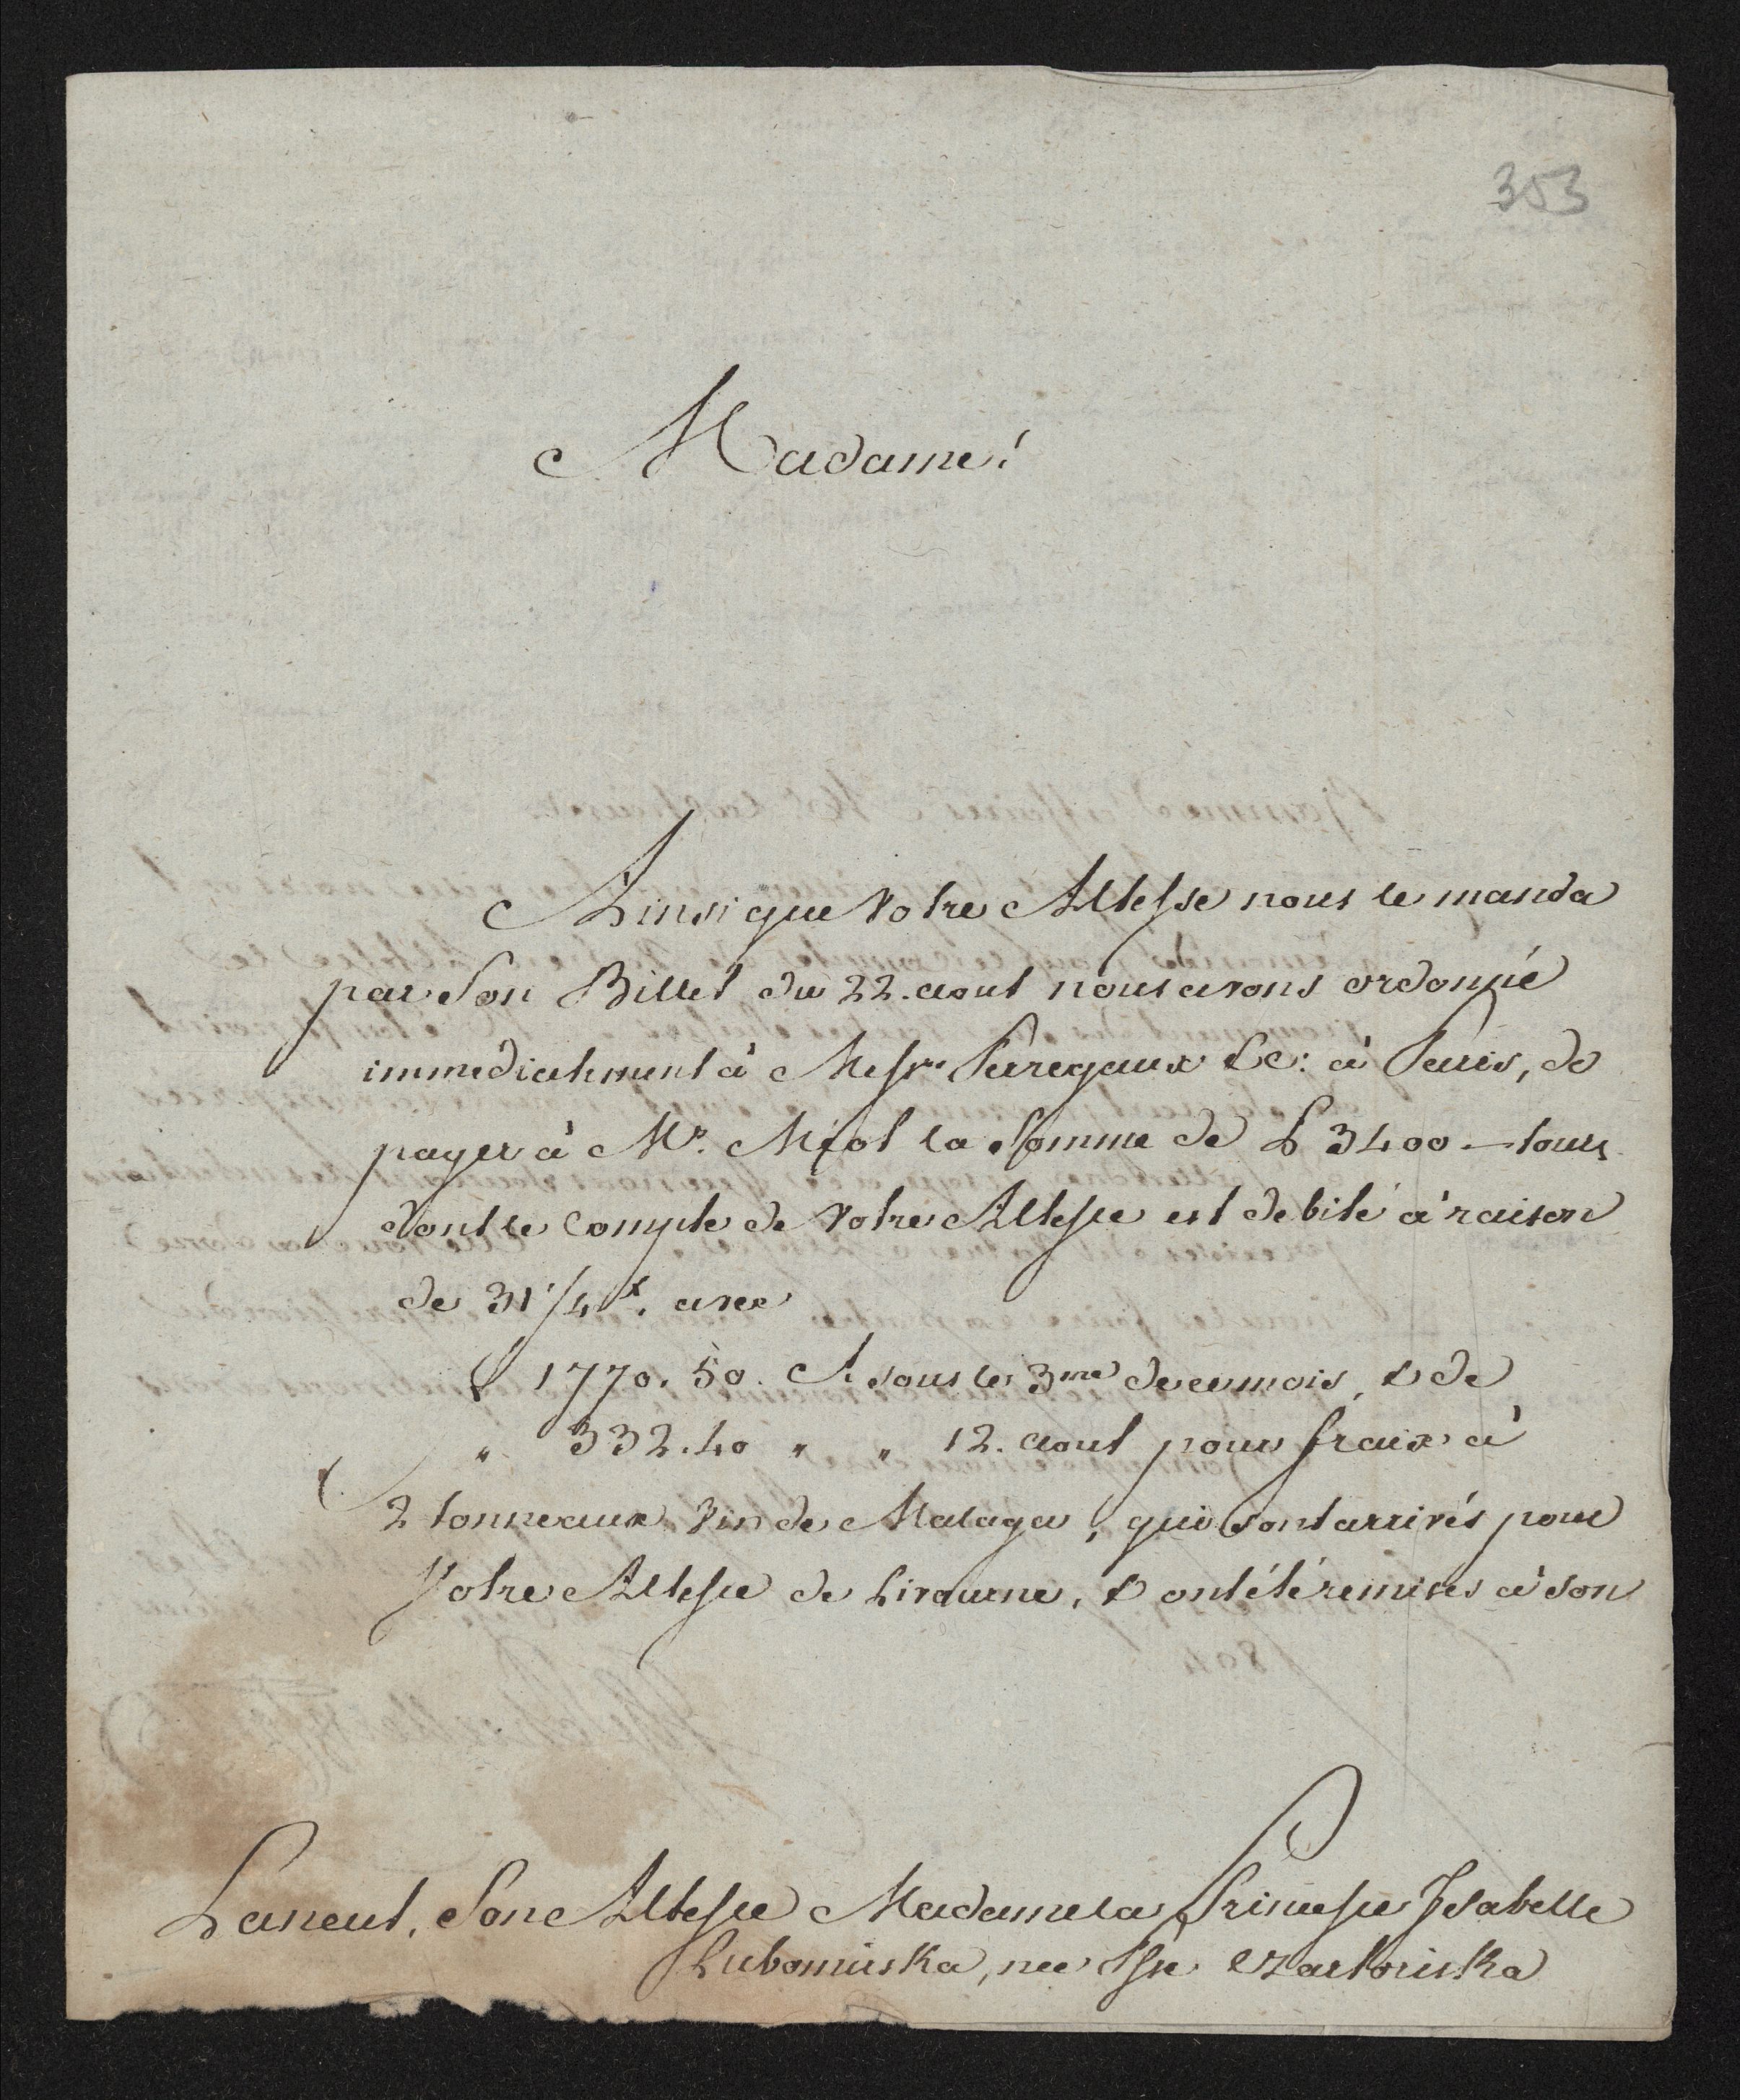 353
Madame!
Ainsi que Votre Altesse nous le manda
par Son Billet du 22. aout nous avons ordonné
immediatement à Messrs Perregaux &c: à Paris, de
payer à Mr. Miot la Somme de L 3400 – tours
dont le Compte de Votre Altesse est debité à raison
de 31 1/4 x. avec
f 1770. 50. A sous le 3me de ce mois, & de
" 332. 40 " " 12. aout pour fraix à
2 tonneaux Vin de Malaga, qui sont arrivés pour
Votre Altesse de Livourne, & ont été remises à son
Lancut, Son Altesse Madame la Princesse Isabelle
Lubomirska, née Psse Czartoriska